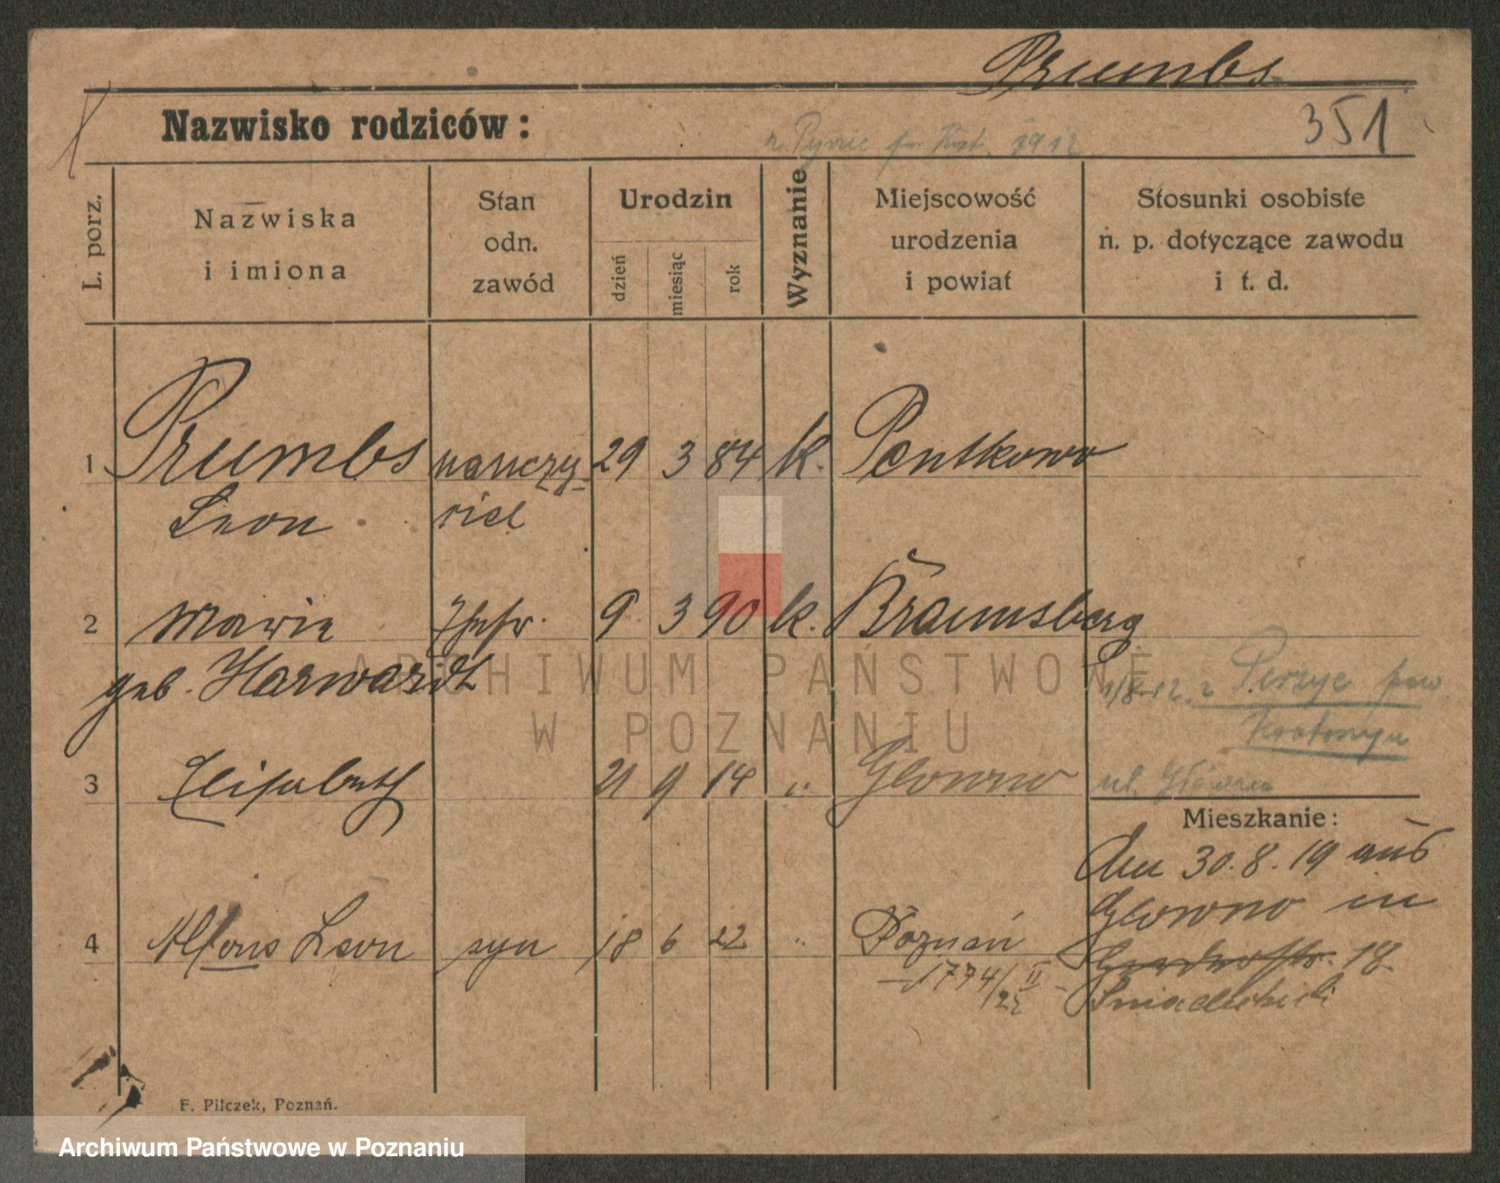 Prumbs
Nazwisko rodziców:
351
1912
L. porz.
Nazwiska
i imiona
Stan
odn.
zawód
Urodzin
dzień
miesiąc
rok
Wyznanie
Miejscowość
urodzenia
i powiat
Stosunki osobiste
n. p. dotyczące zawodu
i t. d.
1 Prumbs nauczy- 29 3 84 k. Pentkowo
Leon ciel
2 Marie Ehefr. 9 3 90 k. Braunsberg
geb. Harwardt
1/8 12. z Perzyc pow.
3 Elisabeth 21 9 14 " Glowno
ul. Główna
Mieszkanie:
Am 30.8.19 aus
Glowno in
18.
Śniadeckich
4 Alfons Leon syn 18 6 22 " Poznań
1774/II 22
F. Pilczek, Poznań.
ARCHIWUM PAŃSTWOWE
W POZNANIU
Archiwum Państwowe w Poznaniu